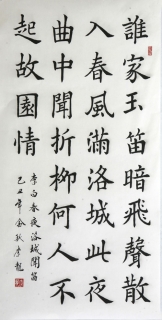 誰家玉笛暗飛聲散
入春風滿洛城此夜
曲中聞折柳何人不
起故園情
李白春夜洛城聞笛